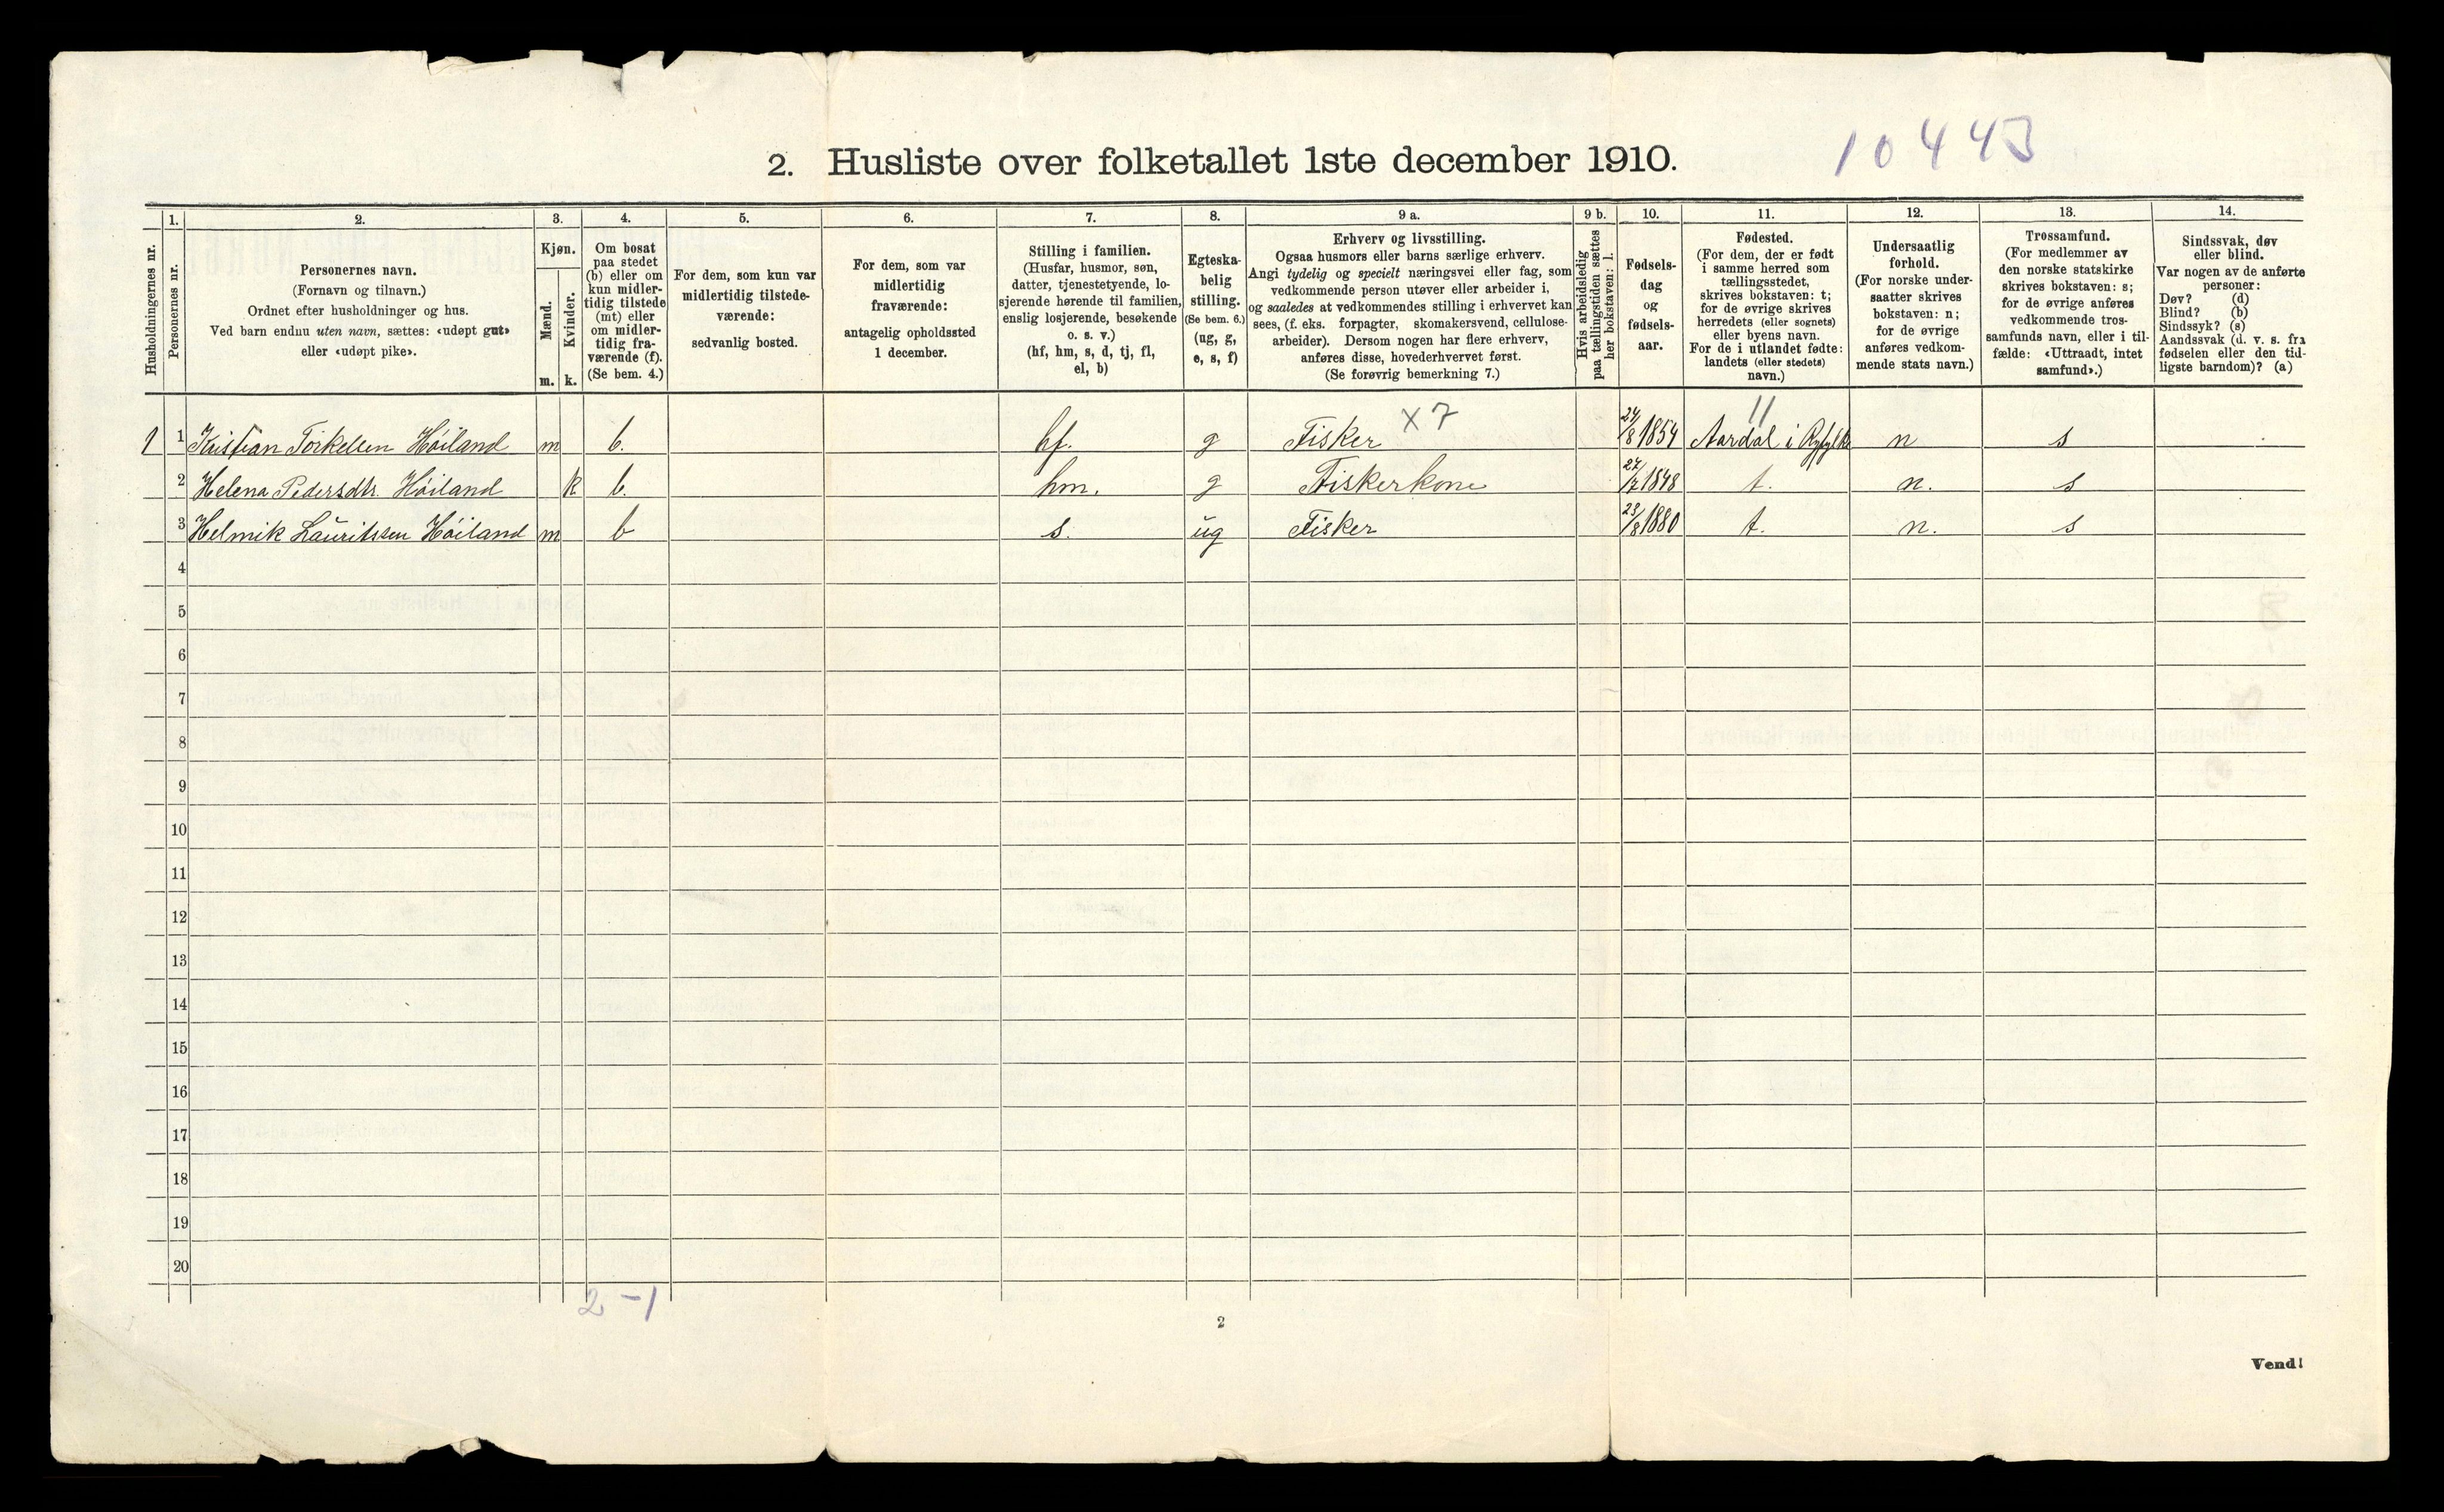 10443
2. Husliste over folketallet 1ste december 1910.
1. 2. 3. 4. 5. 6. 7. 8. 9 a. 9 b. 10. 11. 12. 13. 14.
Husholdningernes nr.
Personernes nr.
Personernes navn.
(Fornavn og tilnavn.)
Ordnet efter husholdninger og hus.
Ved barn endnu uten navn, sættes: «udøpt gut»
eller «udøpt pike».
Kjøn.
Mænd.
Kvinder.
m. k.
Om bosat
paa stedet
(b) eller om
kun midler-
tidig tilstede
(mt) eller
om midler-
tidig fra-
værende (f).
(Se bem. 4.)
For dem, som kun var
midlertidig tilstede-
værende:
sedvanlig bosted.
For dem, som var
midlertidig
fraværende:
antagelig opholdssted
1 december.
Stilling i familien.
(Husfar, husmor, søn,
datter, tjenestetyende, lo-
sjerende hørende til familien,
enslig losjerende, besøkende
o. s. v.)
(hf, hm, s, d, tj, fl,
el, b)
Egteska-
belig
stilling.
(Se bem. 6.)
(ug, g,
e, s, f)
Erhverv og livsstilling.
Ogsaa husmors eller barns særlige erhverv.
Angi tydelig og specielt næringsvei eller fag, som
vedkommende person utøver eller arbeider i,
og saaledes at vedkommendes stilling i erhvervet kan
sees, (f. eks. forpagter, skomakersvend, cellulose-
arbeider). Dersom nogen har flere erhverv,
anføres disse, hovederhvervet først.
(Se forøvrig bemerkning 7.)
Hvis arbeidsledig
paa tællingstiden sættes
her bokstaven: l.
Fødsels-
dag
og
fødsels-
aar.
Fødested.
(For dem, der er født
i samme herred som
tællingsstedet,
skrives bokstaven: t;
for de øvrige skrives
herredets (eller sognets)
eller byens navn.
For de i utlandet fødte:
landets (eller stedets)
navn.)
Undersaatlig
forhold.
(For norske under-
saatter skrives
bokstaven: n;
for de øvrige
anføres vedkom-
mende stats navn.)
Trossamfund.
(For medlemmer av
den norske statskirke
skrives bokstaven: s;
for de øvrige anføres
vedkommende tros-
samfunds navn, eller i til-
fælde: «Uttraadt, intet
samfund».)
Sindssvak, døv
eller blind.
Var nogen av de anførte
personer:
Døv? (d)
Blind? (b)
Sindssyk? (s)
Aandssvak (d. v. s. fra
fødselen eller den tid-
ligste barndom)? (a)
x7 11
1 1 Kristian Torkelsen Höiland m b. hf. g Fisker 24/8 1854 Aardal i Ryfylke n s
2 Helena Pedersdtr. Höiland k b. hm. g Fiskerkone 27/7 1848 t. n. s
3 Helmik Lauritssen Höiland m b s. ug Fisker 23/8 1880 t. n. s
4
5
6
7
8
9
10
11
12
13
14
15
16
17
18
19
20
2 - 1
2
Vend!